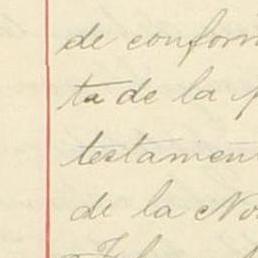 de conform
ta de la
testament
de la No